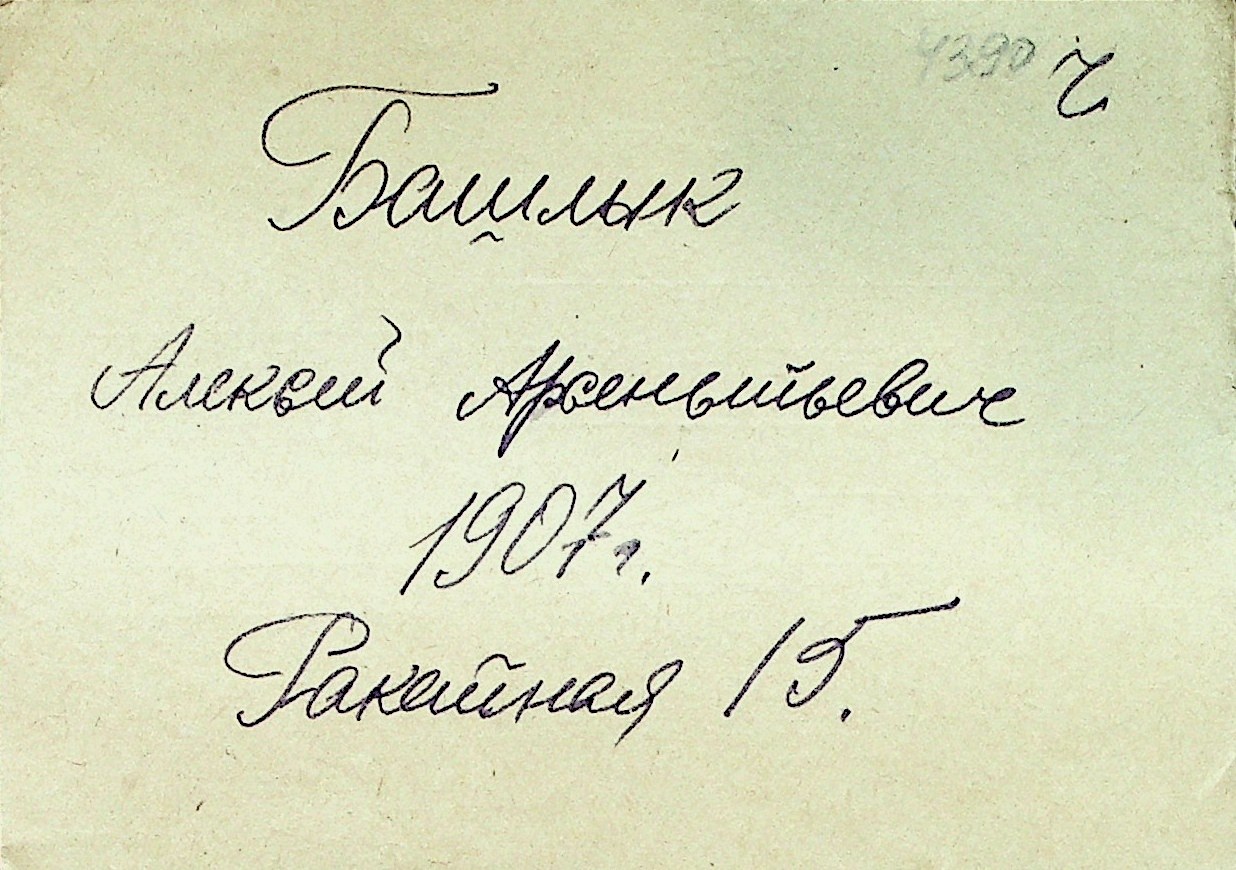 4390 ч
Башлык
Алексей Арсентьевич
1907 г.
Ракетная 15.